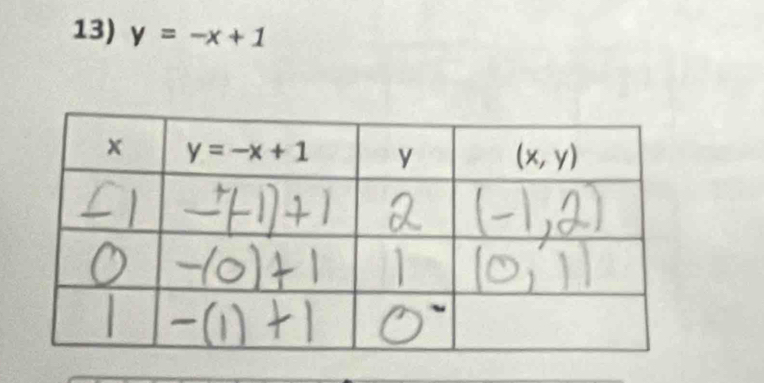 13) y = -x + 1
x y = -x + 1 y (x, y)
-1 -(-1) + 1 2 (-1, 2)
0 -(0) + 1 1 (0, 1)
1 -(1) + 1 0